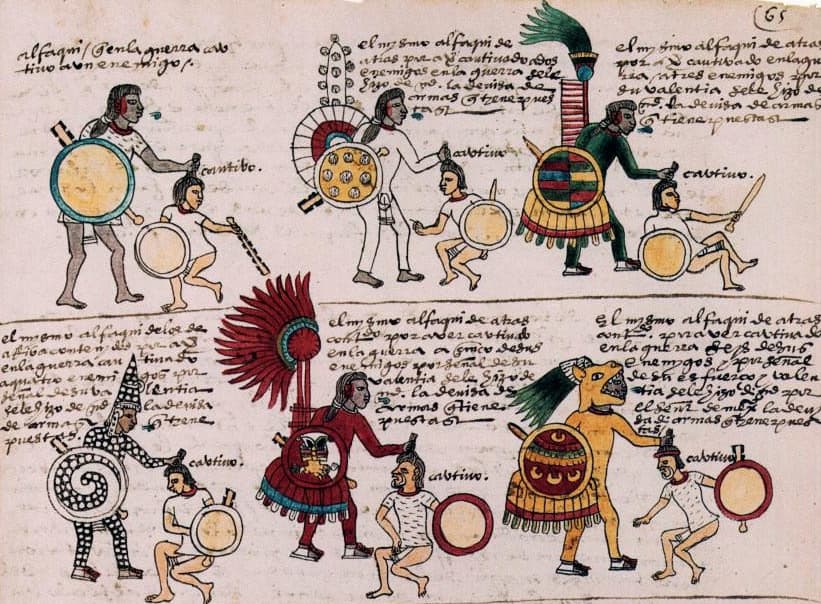 65
alfaqui / q̃ en la guerra cau
tivo a un enemigo /.
cautivo.
el mysmo alfaqui de
atras por aũ cautivado dos
enemigos en la guerra sele
hizo de md. la devisa de
armas q̃ tiene pues
tas
cautivo
el mysmo alfaqui de atras
por aũ cautivado en la gue
rra / a tres enemigos / por
su valentia sele hizo de
md. la devisa de armas
q̃ tiene puestas
cautivo.
el mysmo alfaqui delos de
en la guerra cautivado
a quatro enemigos por
señal de su valentia
sele hizo de md la devisa
de armas q̃ tiene
puestas.
cautivo.
el mysmo alfaqui de atras
por aver cautivado
en la guerra a cinco de sus
enemigos por señal de su
valentia sele hizo de
md. la devisa de
armas q̃ tiene
puestas
cautivo.
el mysmo alfaqui de atras
por aver cautivado
en la guerra seys de sus
enemygos / y por señal
de su esfuerço y valen
tia sele hizo de md por
el señor de mexco la devi
sa de armas q̃ tiene pues
tas
cautivo